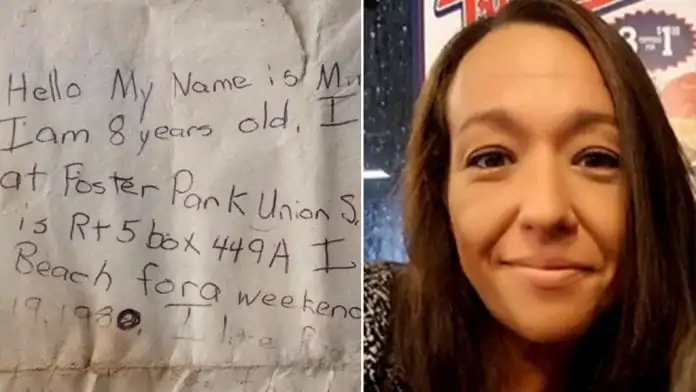 Hello My Name is Mi
I am 8 years old. I
at Foster Park Union S.
is Rt 5 box 449A I
Beach for a weekend
19, 198 . I like
3 1$